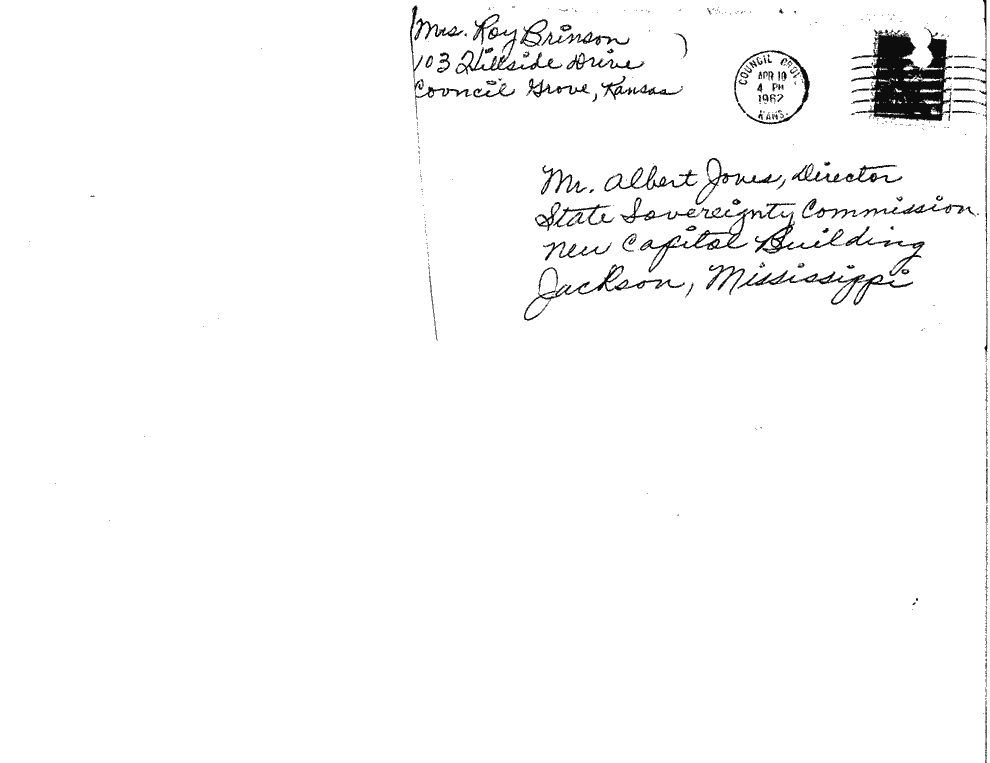 Mrs. Roy Brinson
103 Hillside Drive
Council Grove, Kansas
COUNCIL GROV
APR 10
4 PM
1962
KANS.
Mr. Albert Jones, Director
State Sovereignty Commission
New Capitol Building
Jackson, Mississippi